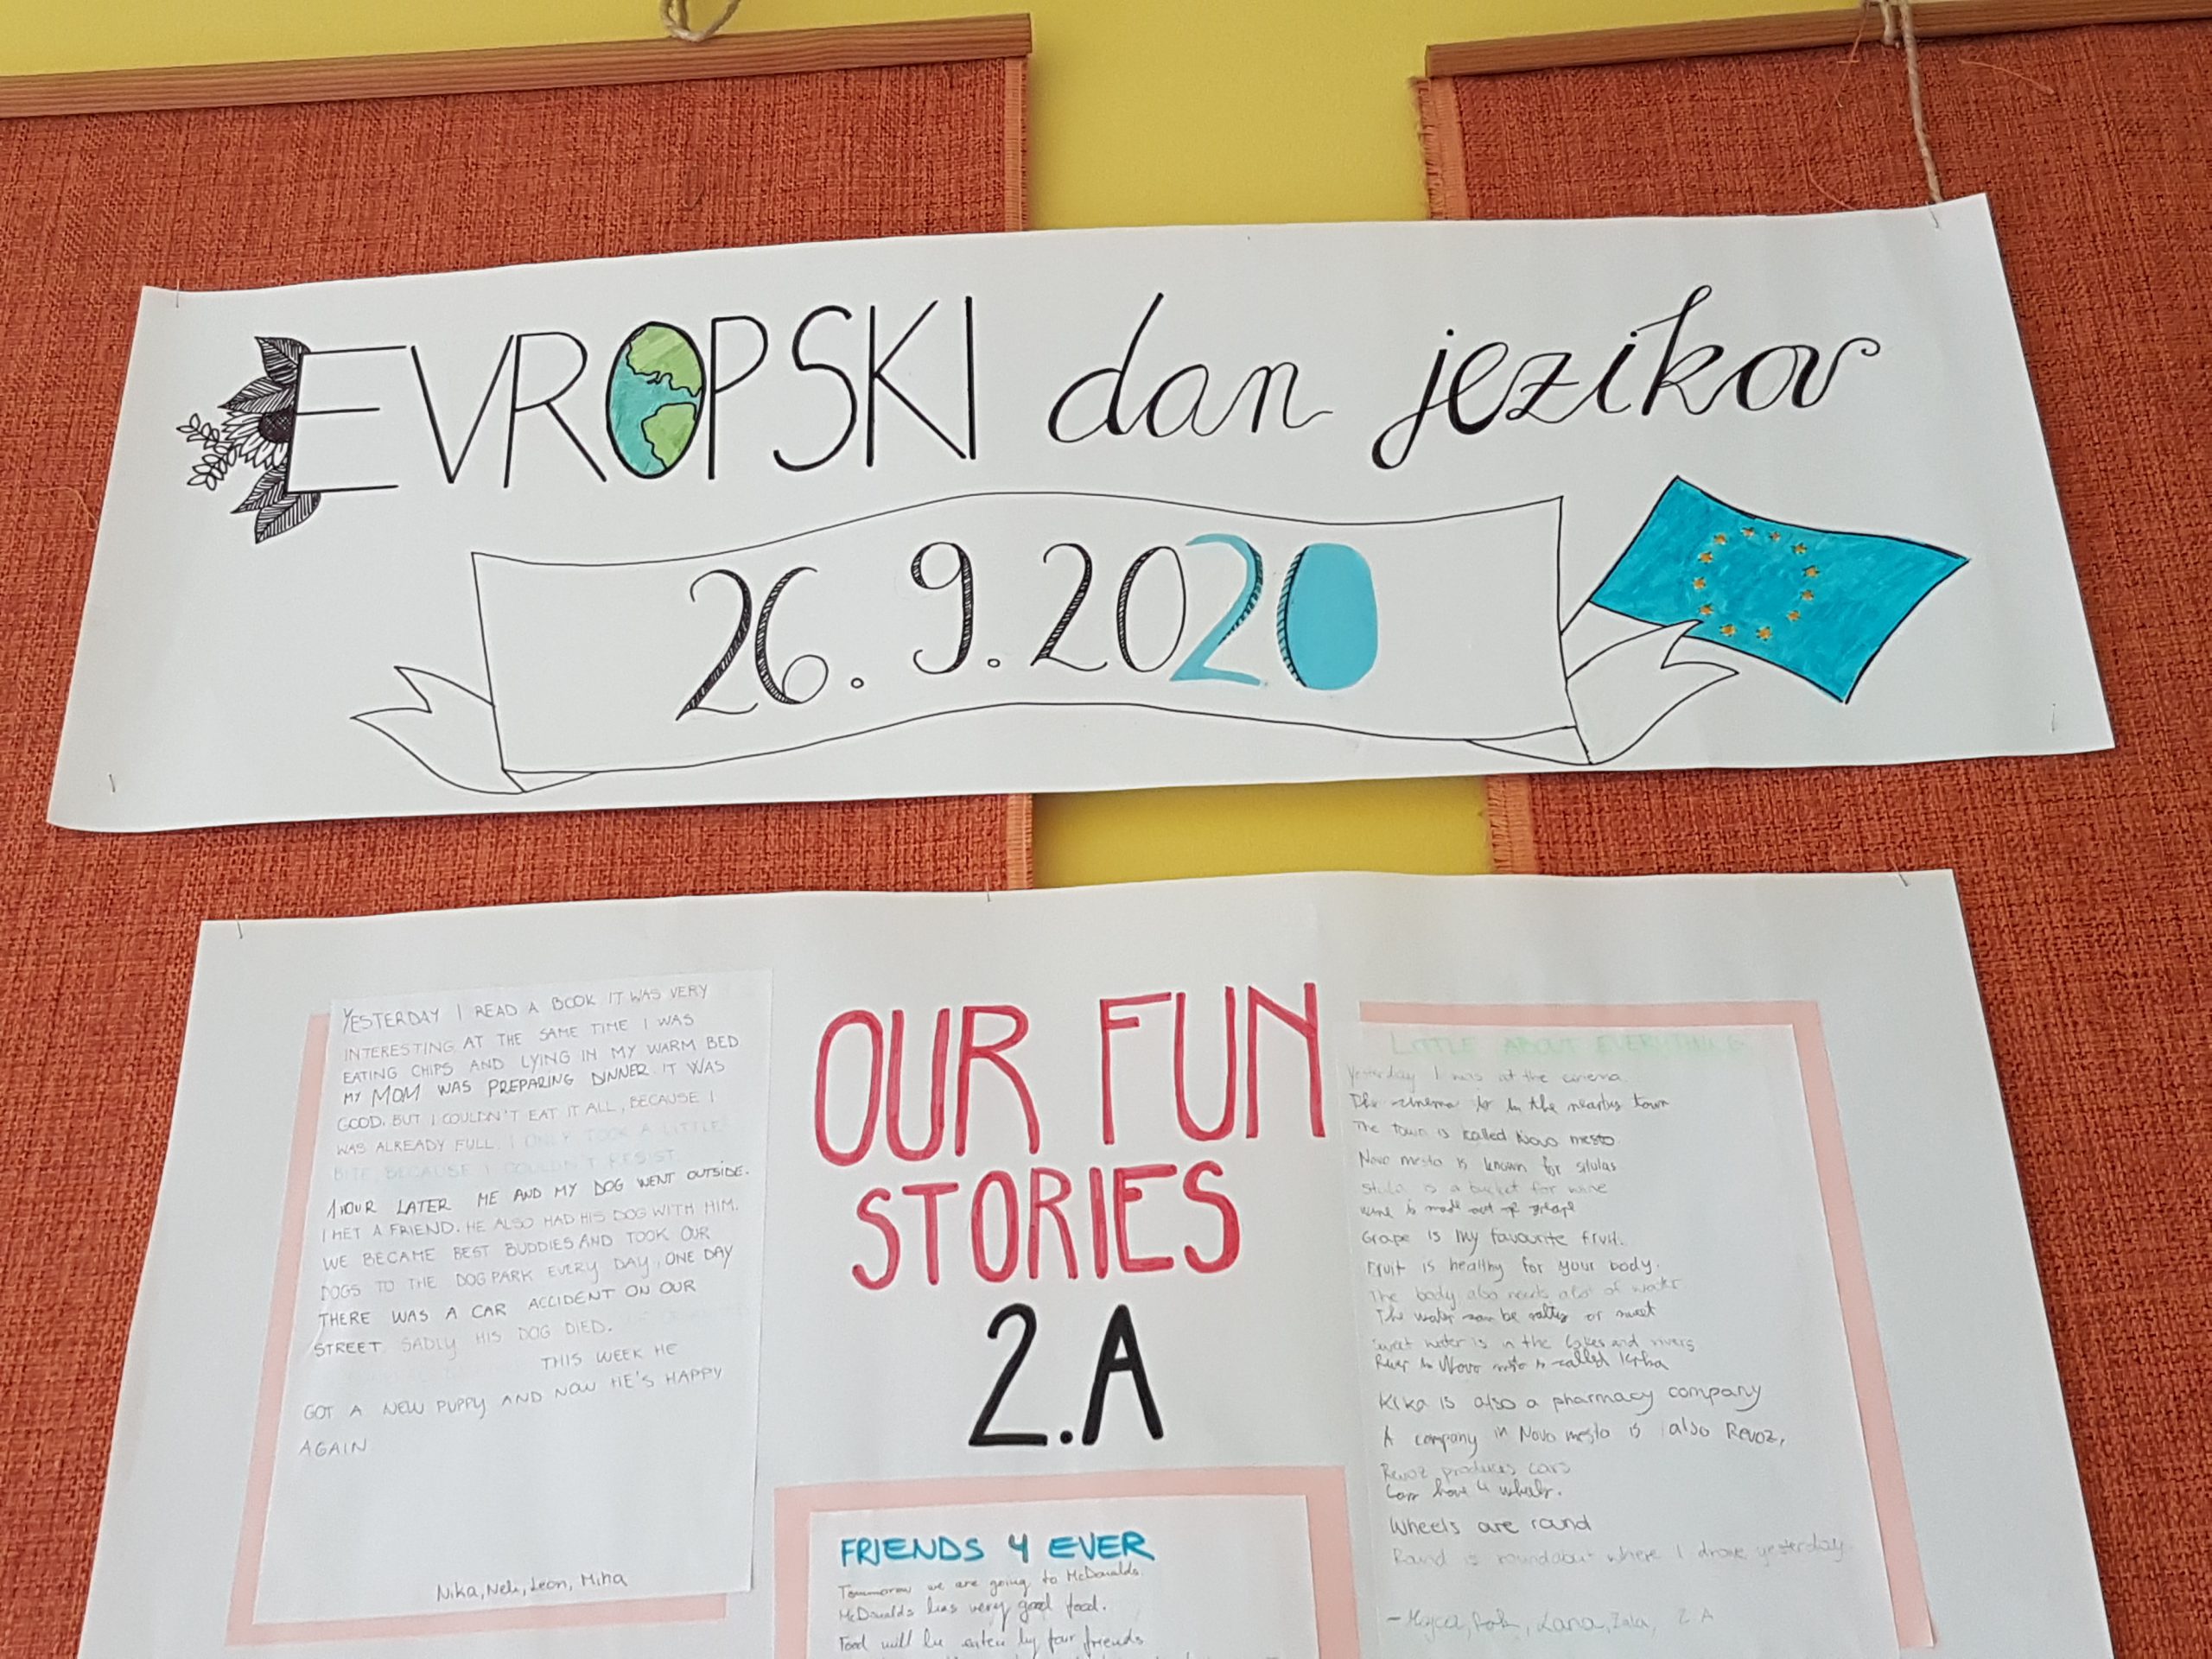 EVROPSKI dan jezikov
26. 9. 2020
YESTERDAY I READ A BOOK IT WAS VERY
INTERESTING AT THE SAME TIME I WAS
EATING CHIPS AND LYING IN MY WARM BED
MY MOM WAS PREPARING DINNER IT WAS
GOOD, BUT I COULDN'T EAT IT ALL, BECAUSE I
WAS ALREADY FULL. I ONLY TOOK A LITTLE
BITE, BECAUSE I COULDN'T RESIST
1 HOUR LATER ME AND MY DOG WENT OUTSIDE.
I MET A FRIEND. HE ALSO HAD HIS DOG WITH HIM.
WE BECAME BEST BUDDIES AND TOOK OUR
DOGS TO THE DOG PARK EVERY DAY, ONE DAY
THERE WAS A CAR ACCIDENT ON OUR
STREET. SADLY HIS DOG DIED.
THIS WEEK HE
GOT A NEW PUPPY AND NOW HE'S HAPPY
AGAIN
Nika, Neli, Leon, Miha
OUR FUN
STORIES
2.A
FRIENDS 4 EVER
Tommorow we are going to McDonalds.
McDonalds has very good food.
Food will be eaten by four friends
LITTLE ABOUT EVERYTHING
Yesterday I was at the cinema
The cinema is in the nearby town
The town is called Novo mesto
Novo mesto is known for situlas
Situla is a bucket for wine
Wine is made out of grape
Grape is my favourite fruit.
Fruit is healthy for your body.
The body also needs alot of water
The water can be salty or sweet
Sweet water is in the lakes and rivers
River in Novo mesto is called Krka
Krka is also a pharmacy company
A company in Novo mesto is also Revoz,
Revoz produces cars
Cars have 4 wheels.
Wheels are round
Round is roundabout where I drove yesterday
Lana, Zala, 2.A